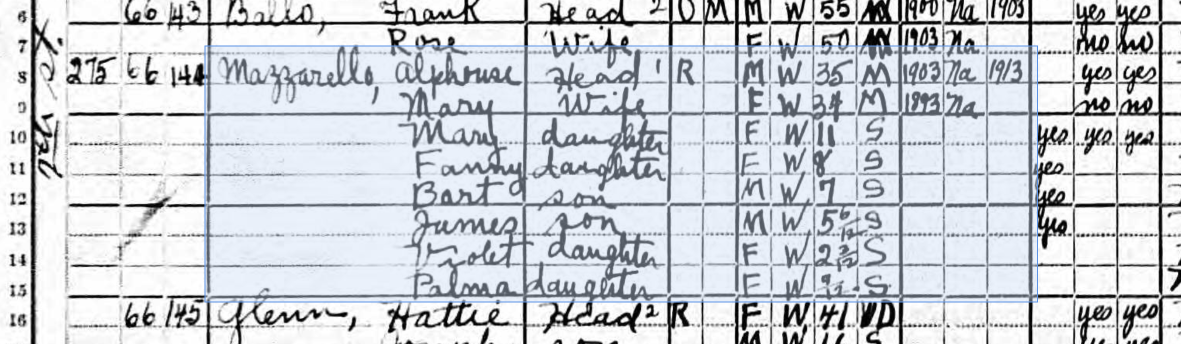 6 66 143 Ballo, Frank Head 2 O M M W 55 M 1900 Na 1903 yes yes
7 Rose Wife F W 50 M 1903 Na no no
8 275 66 144 Mazzarello, Alphouse Head 1 R M W 35 M 1903 Na 1913 yes yes
9 Mary Wife F W 34 M 1893 Na no no
10 Mary daughter F W 11 S yes yes yes
11 Fanny daughter F W 8 S yes
12 Bart son M W 7 S yes
13 James son M W 5 6/12 S yes
14 Violet daughter F W 2 S
15 Palma daughter F W S
16 66 145 Glenn, Hattie Head 2 R F W 41 D yes yes